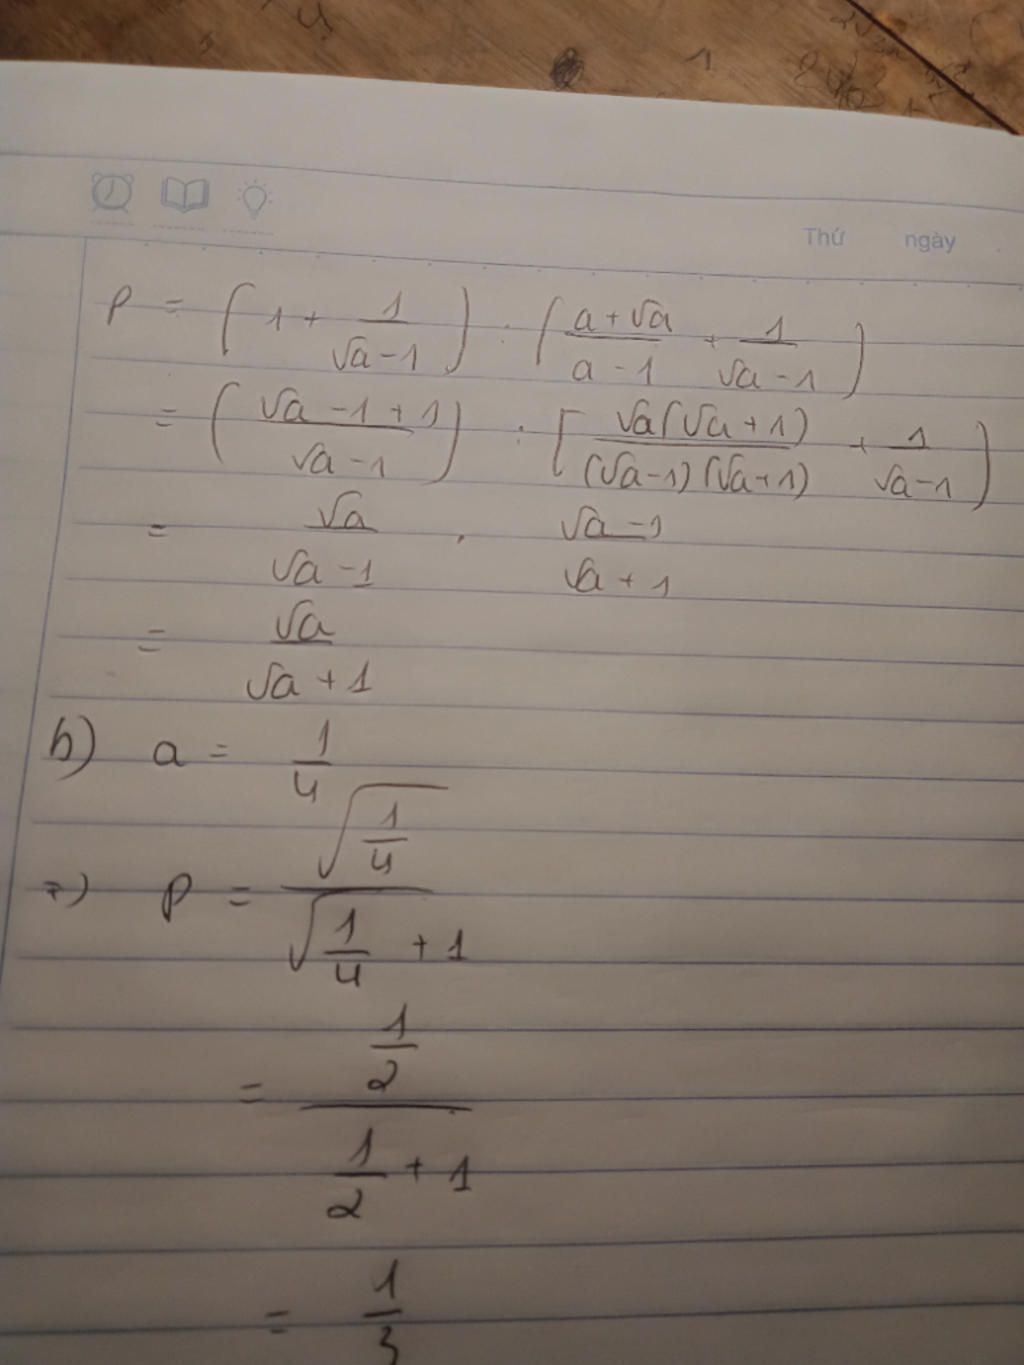 Thứ ngày
P = (1 + 1/(√a-1)) : ((a+√a)/(a-1) + 1/(√a-1))
= ((√a-1+1)/(√a-1)) : [(√a(√a+1))/((√a-1)(√a+1)) + 1/(√a-1))
= √a/(√a-1) . (√a-1)/(√a+1)
= √a/(√a+1)
b) a = 1/4
=) P = √(1/4)/(√(1/4) + 1)
= (1/2)/(1/2 + 1)
= 1/3